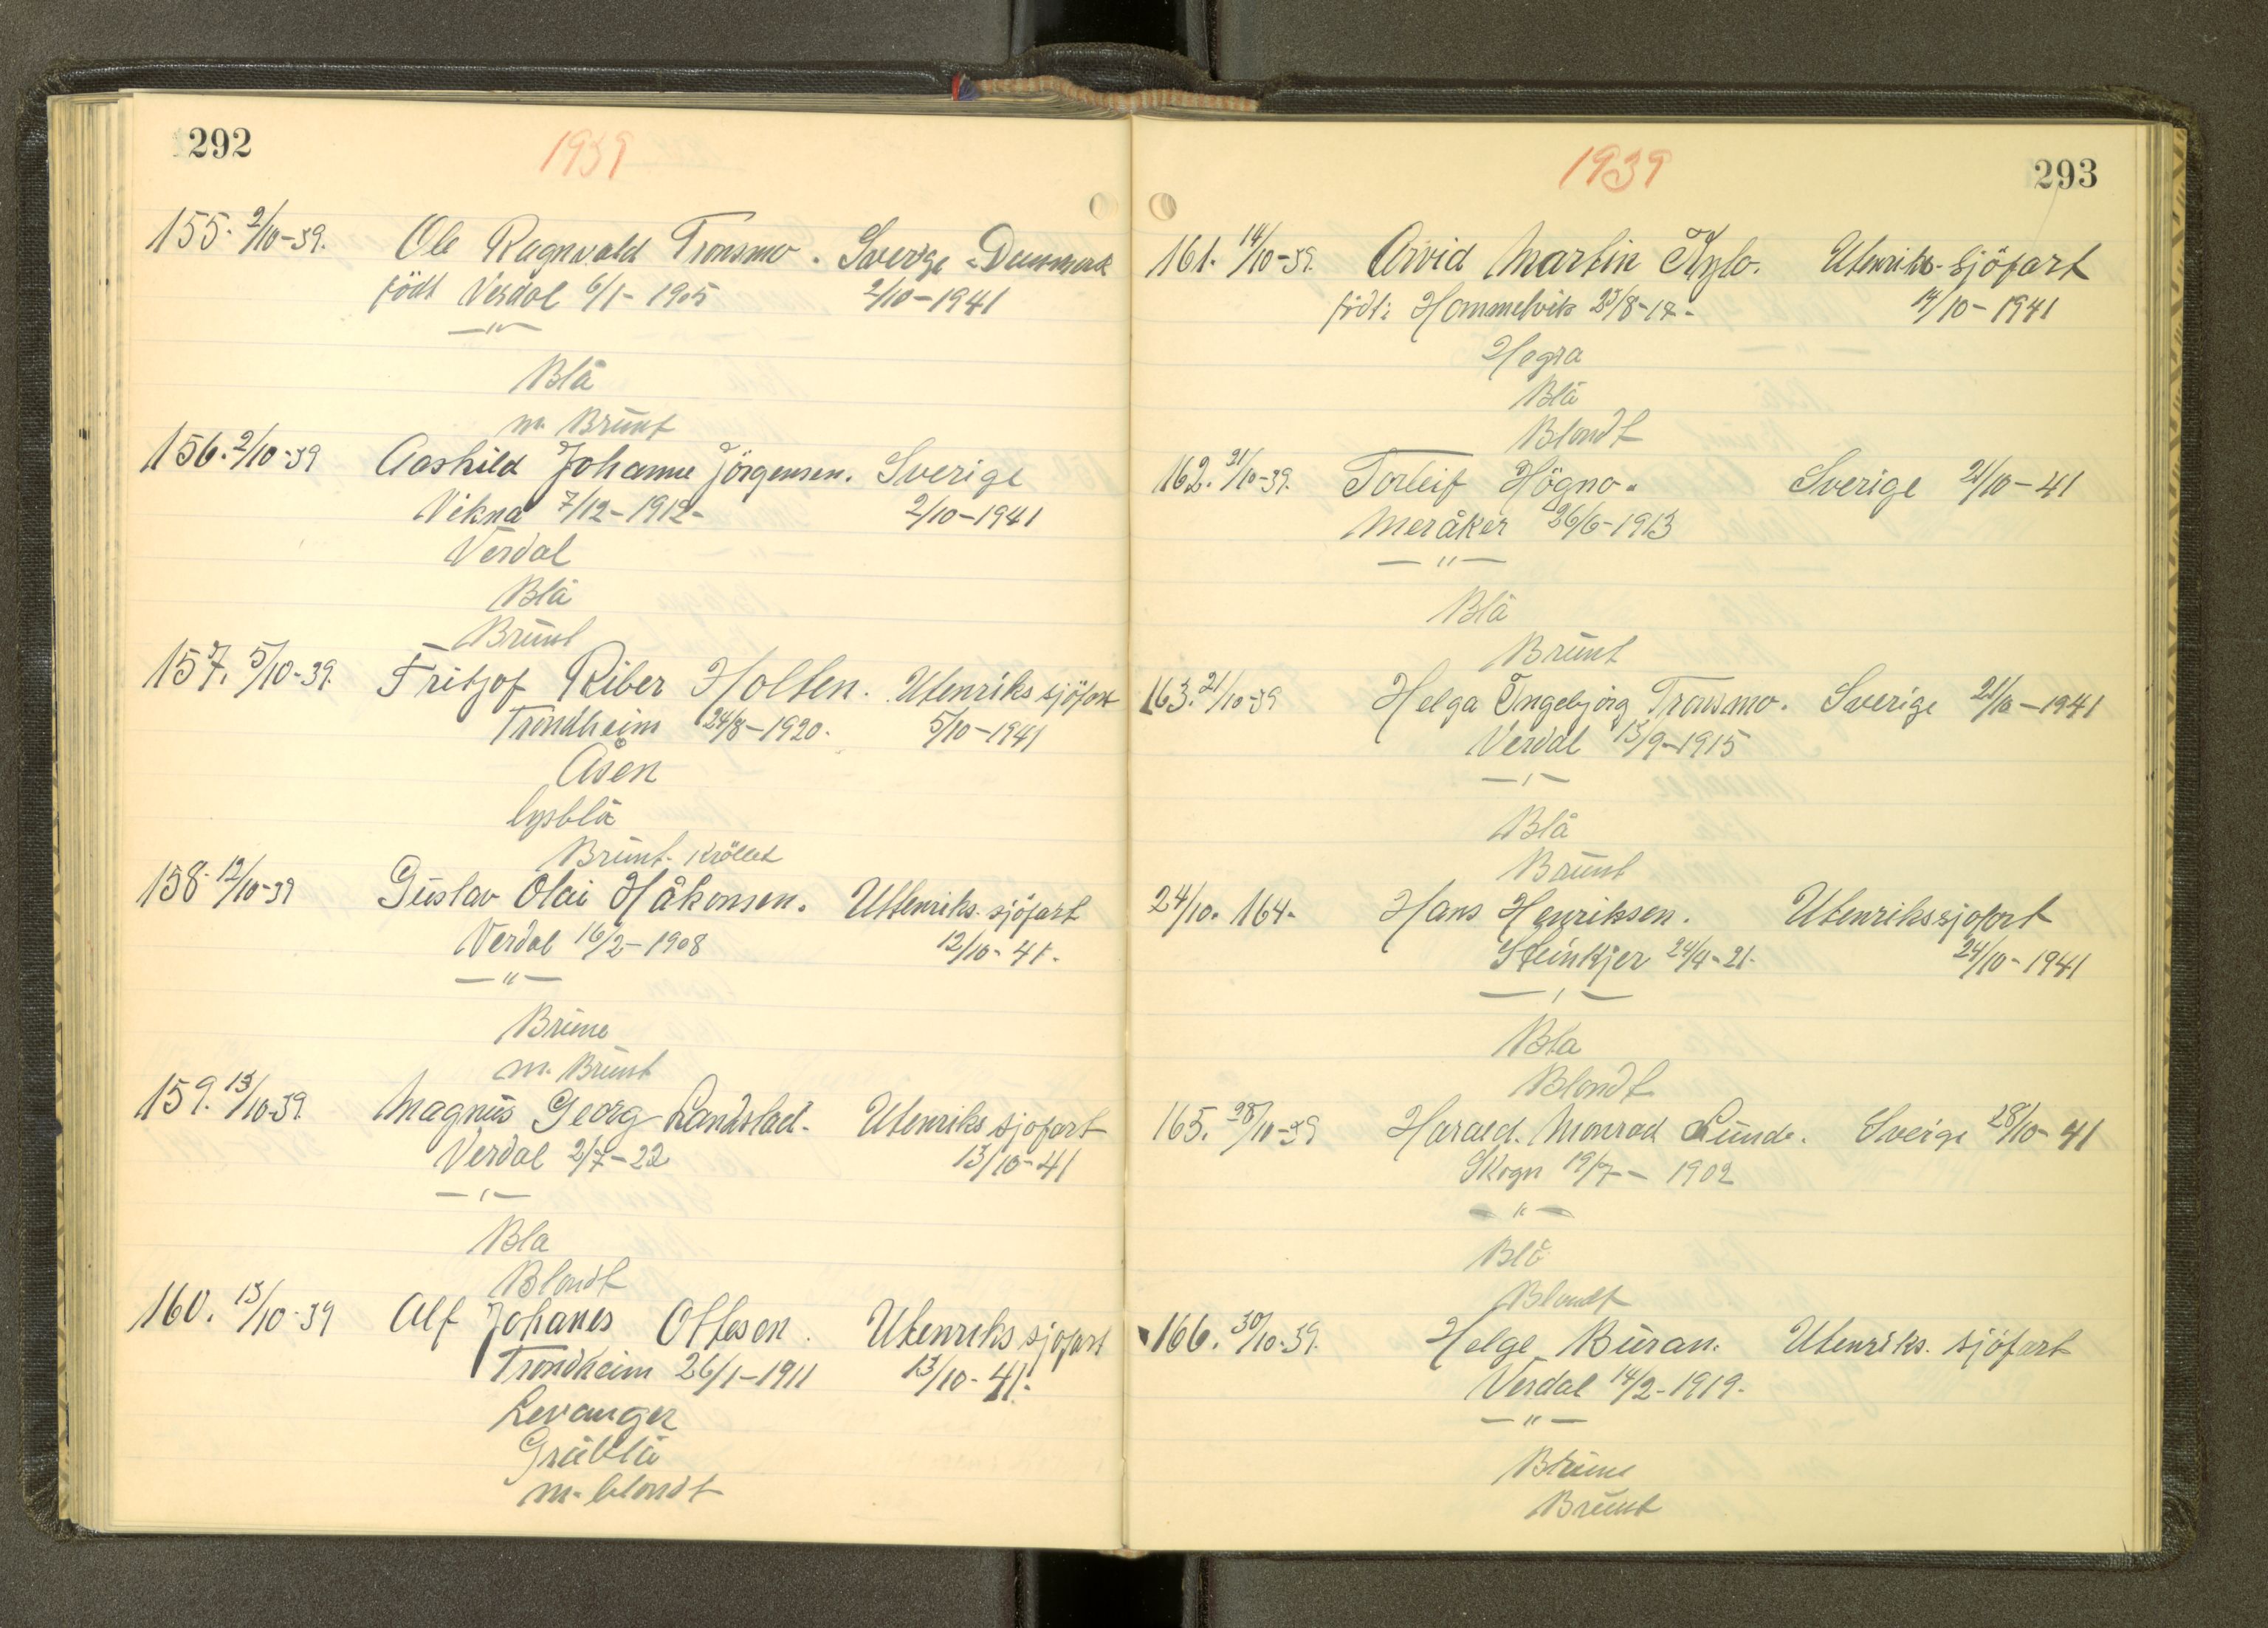 292
1939
155. 2/10-39. Ole Ragnvald Tronsmo. Sverige - Danmark
födt Verdal 6/1-1905 2/10-1941
-"-
Blå
m. Brunt
156. 2/10-39 Aashild Johanne Jörgensen. Sverige
Vikna 7/12-1912- 2/10-1941
Verdal
Blå
Brunt
157. 5/10-39. Fritjof Riber Holten. Utenriks sjöfart
Trondheim 24/8-1920. 5/10-1941
Åsen
lysblå
Brunt. Kröllet
158. 12/10-39 Gustav Olai Håkonsen. Uttenriks. sjöfart
Verdal 16/2-1908 12/10-41.
-"-
Brune
m. Brunt
159. 13/10-39. Magnus Georg Landstad. Utenriks sjöfart
Verdal 2/7-22 13/10-41
-"-
Bla
Blondt
160. 13/10-39 Alf Johanes Ottesen. Utenriks sjöfart
Trondheim 26/1-1911 13/10-41.
Levanger
Gråblå
m. blondt
1939
293
161. 14/10-39. Arvid Martin Kylo. Utenriks-sjöfart
födt: Hommelvik 14/10-1941
Hegra
Blå
Blondt
162. 21/10-39. Torleif Högno. Sverige 21/10-41
Meråker 26/6-1913
-"-
Blå
Brunt
163. 21/10-39 Helga Ingebjörg Tronsmo. Sverige 21/10-1941
Verdal 13/9-1915
-"-
Blå
Brunt
24/10. 164. Hans Henriksen. Utenrikssjofart
Steinkjer 24/4-21. 24/10-1941
-"-
Bla
Blondt
165. 28/10-39 Harald. Monrad Lunde. Sverige 28/10-41
Skogn 19/7- 1902
-"-
Blå
Blondt
166. 30/10-39. Helge Buran. Utenriks. sjöfart
Verdal 14/2-1919.
-"-
Brune
Brunt